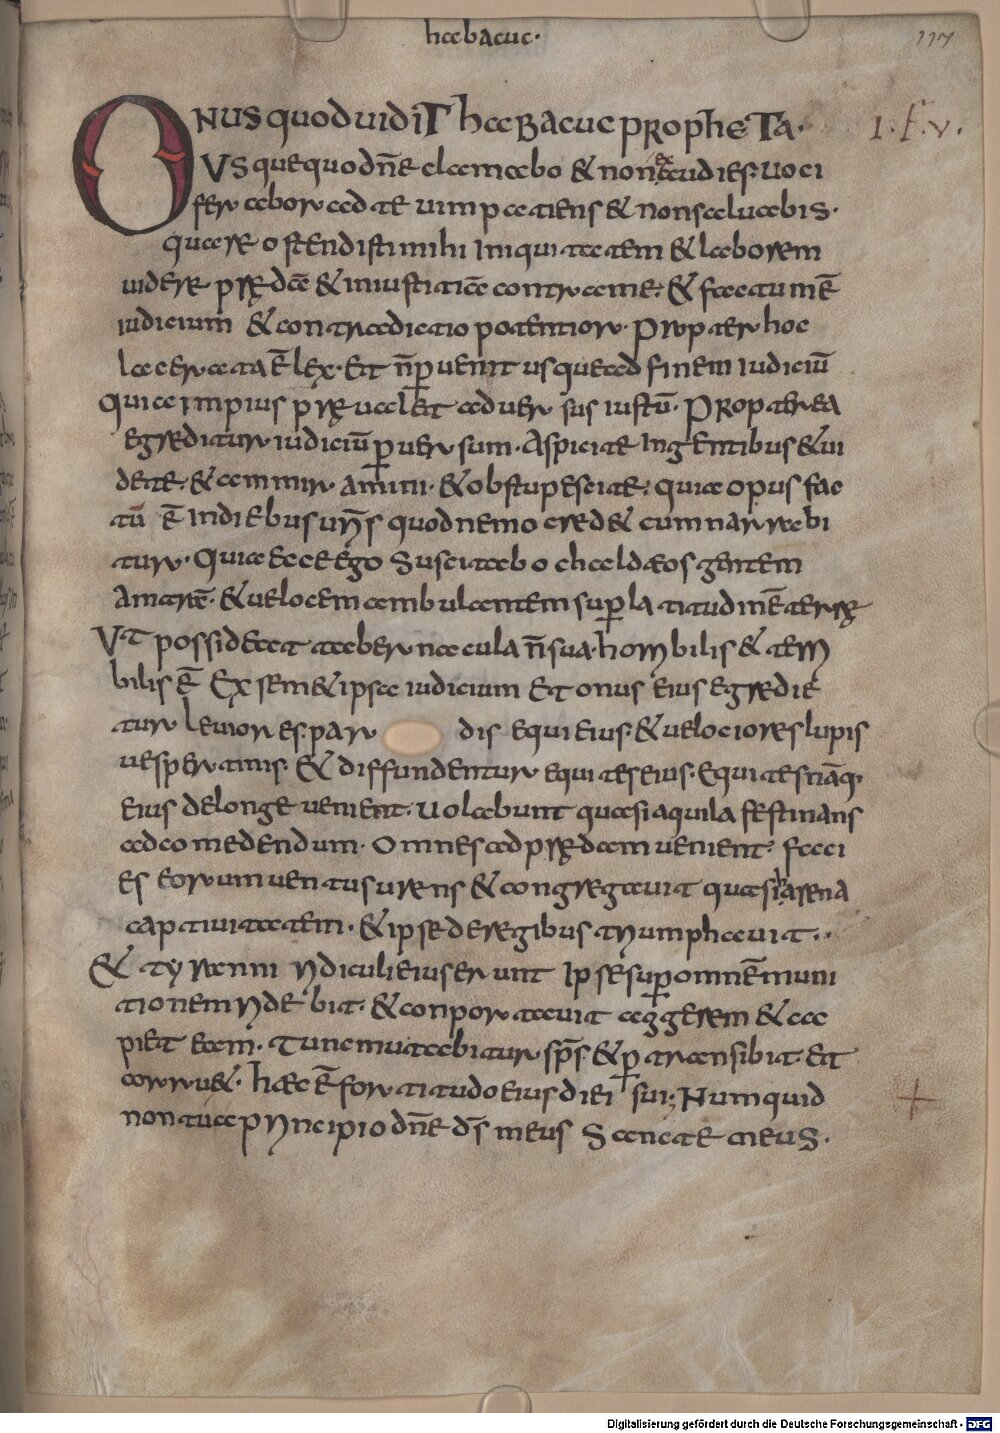 habacuc·
117
ONUS quod uidiT habacuc propheTa· I. F. v.
VSquequo dn̄e clamabo & non exaudies· uoci
ferabor ad te uim patiens & non saluabis·
quare ostendisti mihi iniquitatem & laborem
uidere· prędā & iniustitiā contra me· & factum ē
iudicium & contradictio potentior· Propter hoc
lacerata ē lex· Et n̄ ꝑuenit usque ad finem iudiciū
Quia impius pręualet aduersus iustū· Propterea
egreditur iudiciū ꝑuersum· Aspicite in gentibus & ui
dete· & ammiramini· & obstupescite· quia opus fac
tū ē in diebus ur̄is quod nemo cred& cum narrabi
tur· Quia ecce ego suscitabo chaldæos gentem
amarā· & uelocem ambulantem suꝑ latitudinē terrę
Vt possideat tabernacula n̄ sua· horribilis & terri
bilis ē Ex sem&ipsa iudicium Et onus eius egredie
tur leuiores par dis equi eius· & uelociores lupis
uespertinis· & diffundentur equites eius· Equites nāq·
eius de longe uenient· uolabunt quasi aquila festinans
ad comedendum· Omnes ad prędam uenient· faci
es eorum uentus urens & congregauit quasi harena
captiuitatem· & ipse de regibus triumphauit··
& tyranni ridiculi eius erunt Ipse suꝑ omnē muni
tionem ridebit· & conportauit aggerem & ca
piet eam· Tunc mutabitur sp̄s & ꝑtransibit· Et
corru&· hæc ē fortitudo eius dei sui; Numquid
non tu a principio dn̄e ds̄ meus Sancte meus·
Digitalisierung gefördert durch die Deutsche Forschungsgemeinschaft - DFG